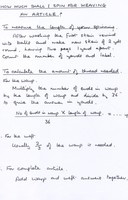 HOW MUCH SHALL I SPIN FOR WEAVING
AN ARTICLE?
To measure the length of your spinning.
After washing the first skein wound
into balls and make new skein of 2 yd
round, tieing two pegs 1 yard apart.
Count the number of yards and label.
To calculate the amount of thread needed.
For the warp.
Multiply the number of ends in warp
by the length of warp and divide by 36"
to give the answer in yards.
No of ends in warp x length of warp
36
For the weft
Usually 2/3 of the warp is needed.
For complete article
Add warp and weft amounts together.